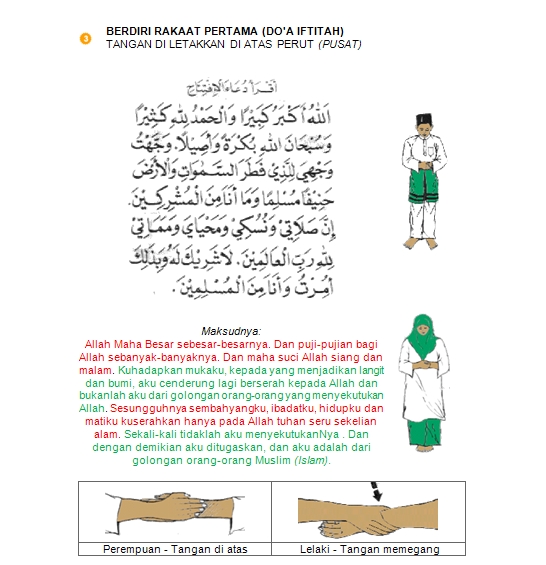 3
BERDIRI RAKAAT PERTAMA (DO'A IFTITAH)
TANGAN DI LETAKKAN DI ATAS PERUT (PUSAT)
اقرأ دعاء الإفتتاح
اَللهُ اَكْبَرُ كَبِيْرًا وَالْحَمْدُ لِلّٰهِ كَثِيْرًا
وَسُبْحَانَ اللهِ بُكْرَةً وَاَصِيْلًا. وَجَّهْتُ
وَجْهِيَ لِلَّذِيْ فَطَرَ السَّمٰوَاتِ وَالْاَرْضَ
حَنِيْفًا مُسْلِمًا وَمَا اَنَا مِنَ الْمُشْرِكِيْنَ.
اِنَّ صَلَاتِيْ وَنُسُكِيْ وَمَحْيَايَ وَمَمَاتِيْ
لِلّٰهِ رَبِّ الْعَالَمِيْنَ. لَا شَرِيْكَ لَهُ وَبِذٰلِكَ
اُمِرْتُ وَاَنَا مِنَ الْمُسْلِمِيْنَ.
Maksudnya:
Allah Maha Besar sebesar-besarnya. Dan puji-pujian bagi
Allah sebanyak-banyaknya. Dan maha suci Allah siang dan
malam. Kuhadapkan mukaku, kepada yang menjadikan langit
dan bumi, aku cenderung lagi berserah kepada Allah dan
bukanlah aku dari golongan orang-orang yang menyekutukan
Allah. Sesungguhnya sembahyangku, ibadatku, hidupku dan
matiku kuserahkan hanya pada Allah tuhan seru sekelian
alam. Sekali-kali tidaklah aku menyekutukanNya . Dan
dengan demikian aku ditugaskan, dan aku adalah dari
golongan orang-orang Muslim (Islam).
Perempuan - Tangan di atas
Lelaki - Tangan memegang